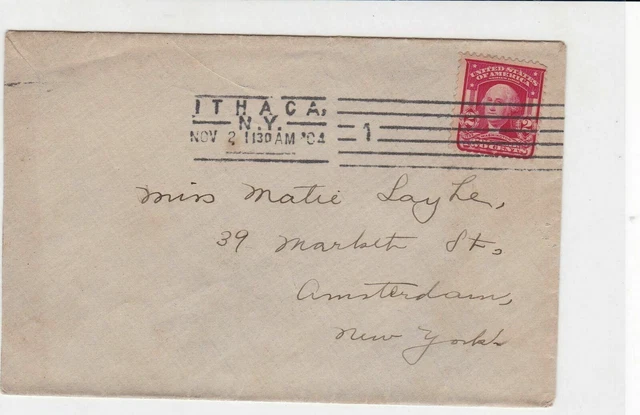 ITHACA,
N.Y.
NOV 2 1130 AM '04
1
UNITED STATES
OF AMERICA
2
TWO CENTS
Miss Matie Layhe,
39 Market St.,
Amsterdam,
New York